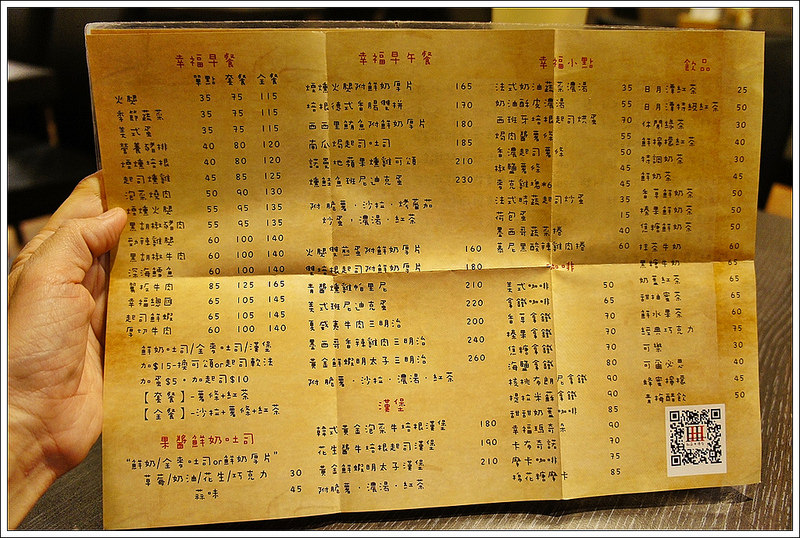 幸福早餐
單點 套餐 全餐
火腿 35 75 115
季節蔬菜 35 75 115
美式蛋 35 75 115
營養豬排 40 80 120
煙燻培根 40 80 120
起司燻雞 45 85 125
泡菜燒肉 50 90 130
煙燻火腿 55 95 135
黑胡椒豬肉 55 95 135
60 100 140
黑胡椒牛肉 60 100 140
深海鱈魚 60 100 140
85 125 165
幸福總匯 65 105 145
起司鮮蝦 65 105 145
厚切牛肉 60 100 140
鮮奶吐司/全麥吐司/漢堡
加$15-換可頌or起司軟法
加蛋$5，加起司$10
【套餐】-薯條+紅茶
【全餐】-沙拉+薯條+紅茶
果醬鮮奶吐司
"鮮奶/全麥吐司or鮮奶厚片"
草莓/奶油/花生/巧克力 30
蒜味 45
幸福早午餐
煙燻火腿附鮮奶厚片 165
培根德式香腸雙拼 170
西西里鮪魚附鮮奶厚片 180
南瓜焗起司吐司 185
諾曼地蘋果燻雞可頌 210
燻鮭魚班尼迪克蛋 230
附脆薯，沙拉，烤番茄
炒蛋，濃湯，紅茶
火腿雙煎蛋附鮮奶厚片 160
雙培根起司附鮮奶厚片 180
青醬燻雞帕里尼 210
美式班尼迪克蛋 220
夏威夷牛肉三明治 200
墨西哥香辣雞肉三明治 240
黃金鮮蝦明太子三明治 260
附脆薯，沙拉，濃湯，紅茶
漢堡
韓式黃金泡菜牛培根漢堡 180
花生醬牛培根起司漢堡 190
黃金鮮蝦明太子漢堡 210
附脆薯，濃湯，紅茶
幸福小點
法式奶油蔬菜濃湯 35
奶油酥皮濃湯 55
西班牙培根起司烘蛋 70
焗肉醬薯條 55
香濃起司薯條 50
椒鹽薯條 45
麥克雞塊*6 45
法式時蔬起司炒蛋 35
荷包蛋 15
墨西哥蔬菜捲 40
墨尼黑酸辣雞肉捲 60
咖啡
美式咖啡 50
拿鐵咖啡 65
香草拿鐵 70
榛果拿鐵 70
焦糖拿鐵 70
海鹽拿鐵 80
核桃布朗尼拿鐵 90
提拉米蘇拿鐵 90
甜甜奶蓋咖啡 85
幸福瑪奇朵 90
卡布奇諾 70
摩卡咖啡 70
棉花糖摩卡 85
飲品
日月潭紅茶 25
日月潭特級紅茶 50
休閒綠茶 30
鮮檸檬紅茶 40
特調奶茶 30
鮮奶茶 45
香草鮮奶茶 50
榛果鮮奶茶 50
焦糖鮮奶茶 50
抹茶牛奶 60
黑糖牛奶 65
奶蓋紅茶 65
甜柚蜜茶 65
鮮水果茶 60
經典巧克力 75
可樂 30
可爾必思 40
蜂蜜檸檬 45
青梅醋飲 50